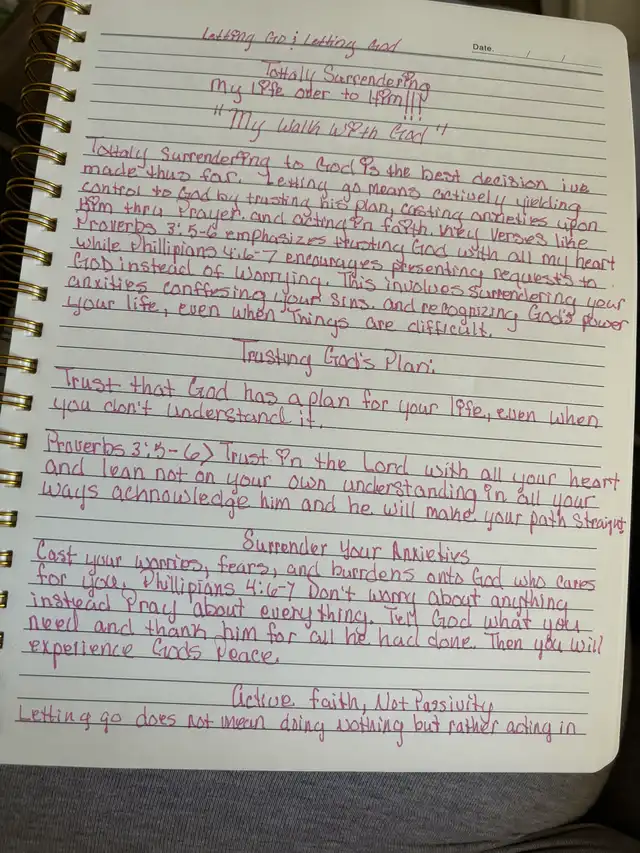 Letting Go & Letting God
Date. / /
Tottaly Surrendering
My Life over to Him!!!
"My Walk With God"
Tottaly Surrendering to God is the best decision ive
made thus far. Letting go means actively yielding
control to God by trusting his plan, casting anxieties upon
Him thru Prayer, and acting in faith. Key Verses like
Proverbs 3:5-6 emphasizes trusting God with all my heart
while Phillipians 4:6-7 encourages presenting requests to
God instead of worrying. This involves surrendering your
anxities confessing your sins, and recognizing God's power
your life, even when Things are difficult.
Trusting God's Plan:
Trust that God has a plan for your life, even when
you don't understand it.
Proverbs 3:5-6> Trust in the Lord with all your heart
and lean not on your own understanding in all your
ways achnowledge him and he will make your path straight
Surrender Your Anxieties
Cast your worries, fears, and burrdens onto God who cares
for you, Phillipians 4:6-7 Don't worry about anything
instead Pray about everything. Tell God what you
need and thank him for all he had done. Then you will
experience Gods Peace.
Active faith, Not Passivity
Letting go does not mean doing nothing but rather acting in